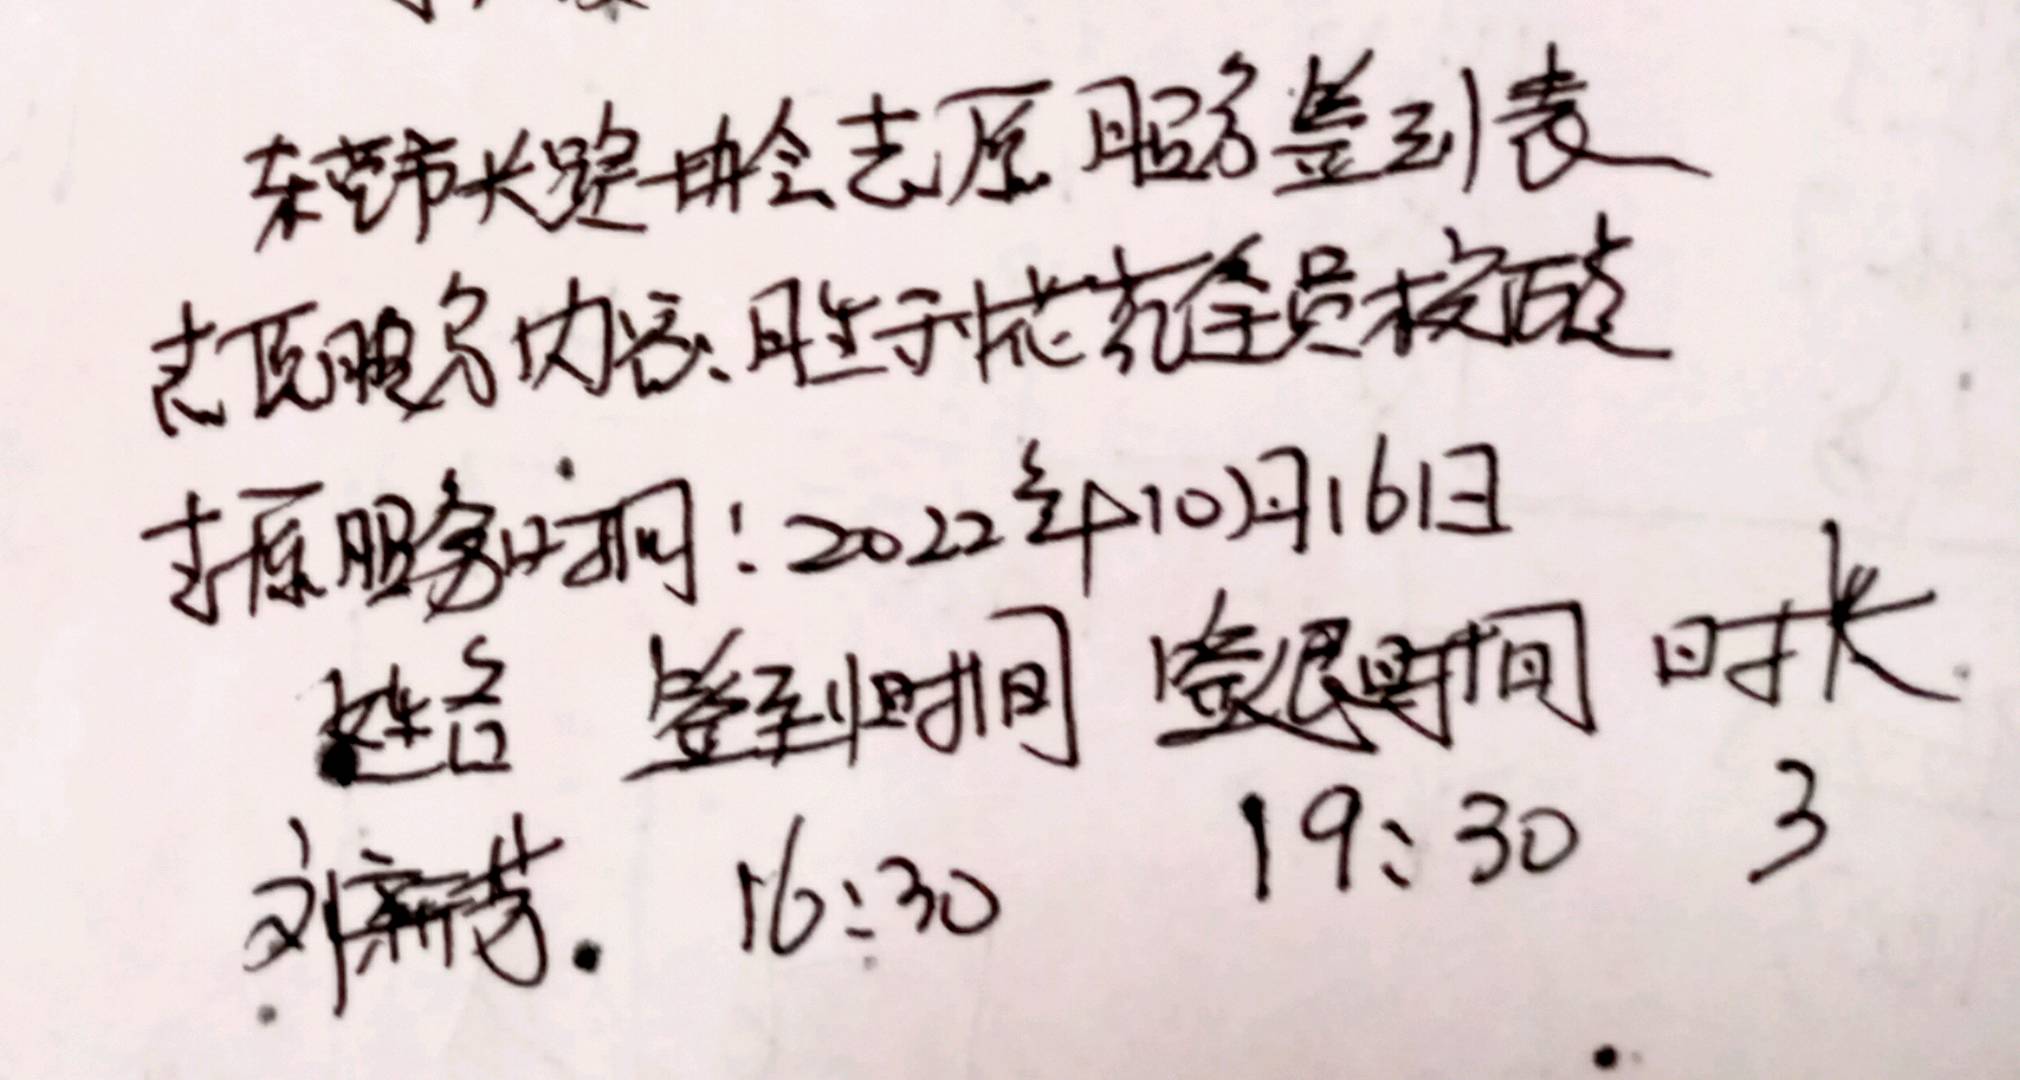 东莞市长跑协会志愿服务签到表
志愿服务内容:胜于桥 全员核酸
志愿服务时间:2022年10月16日
姓名 签到时间 签退时间 时长
刘新芳. 16:30 19:30 3